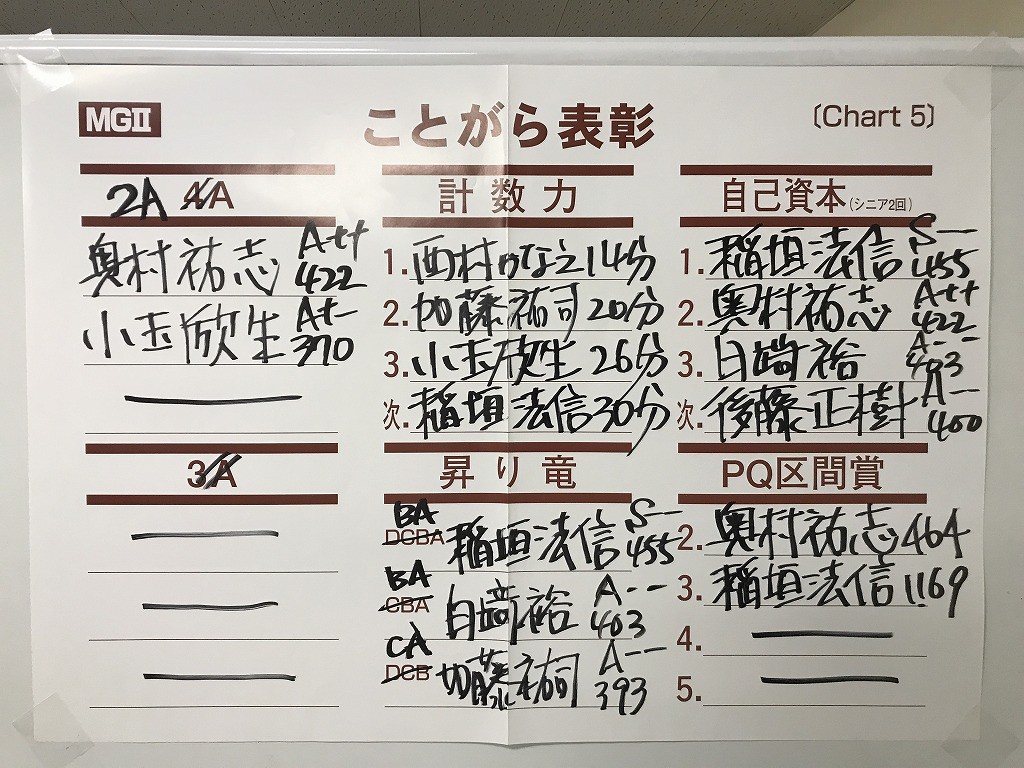 MGⅡ
ことがら表彰
〔Chart 5〕
2A 4A
奥村祐志 A++ 422
小玉欣生 A+- 390
3A
計数力
1. 西村かなえ 14分
2. 加藤祐司 20分
3. 小玉欣生 26分
次. 稲垣法信 30分
昇り竜
BA
DCBA 稲垣法信 S-- 455
BA
CBA 白﨑裕 A-- 403
CA
DCB 加藤祐司 A-- 393
自己資本(シニア2回)
1. 稲垣法信 S-- 455
2. 奥村祐志 A++ 422
3. 白﨑裕 A-- 403
次. 後藤正樹 A-- 400
PQ区間賞
2. 奥村祐志 464
3. 稲垣法信 1169
4.
5.